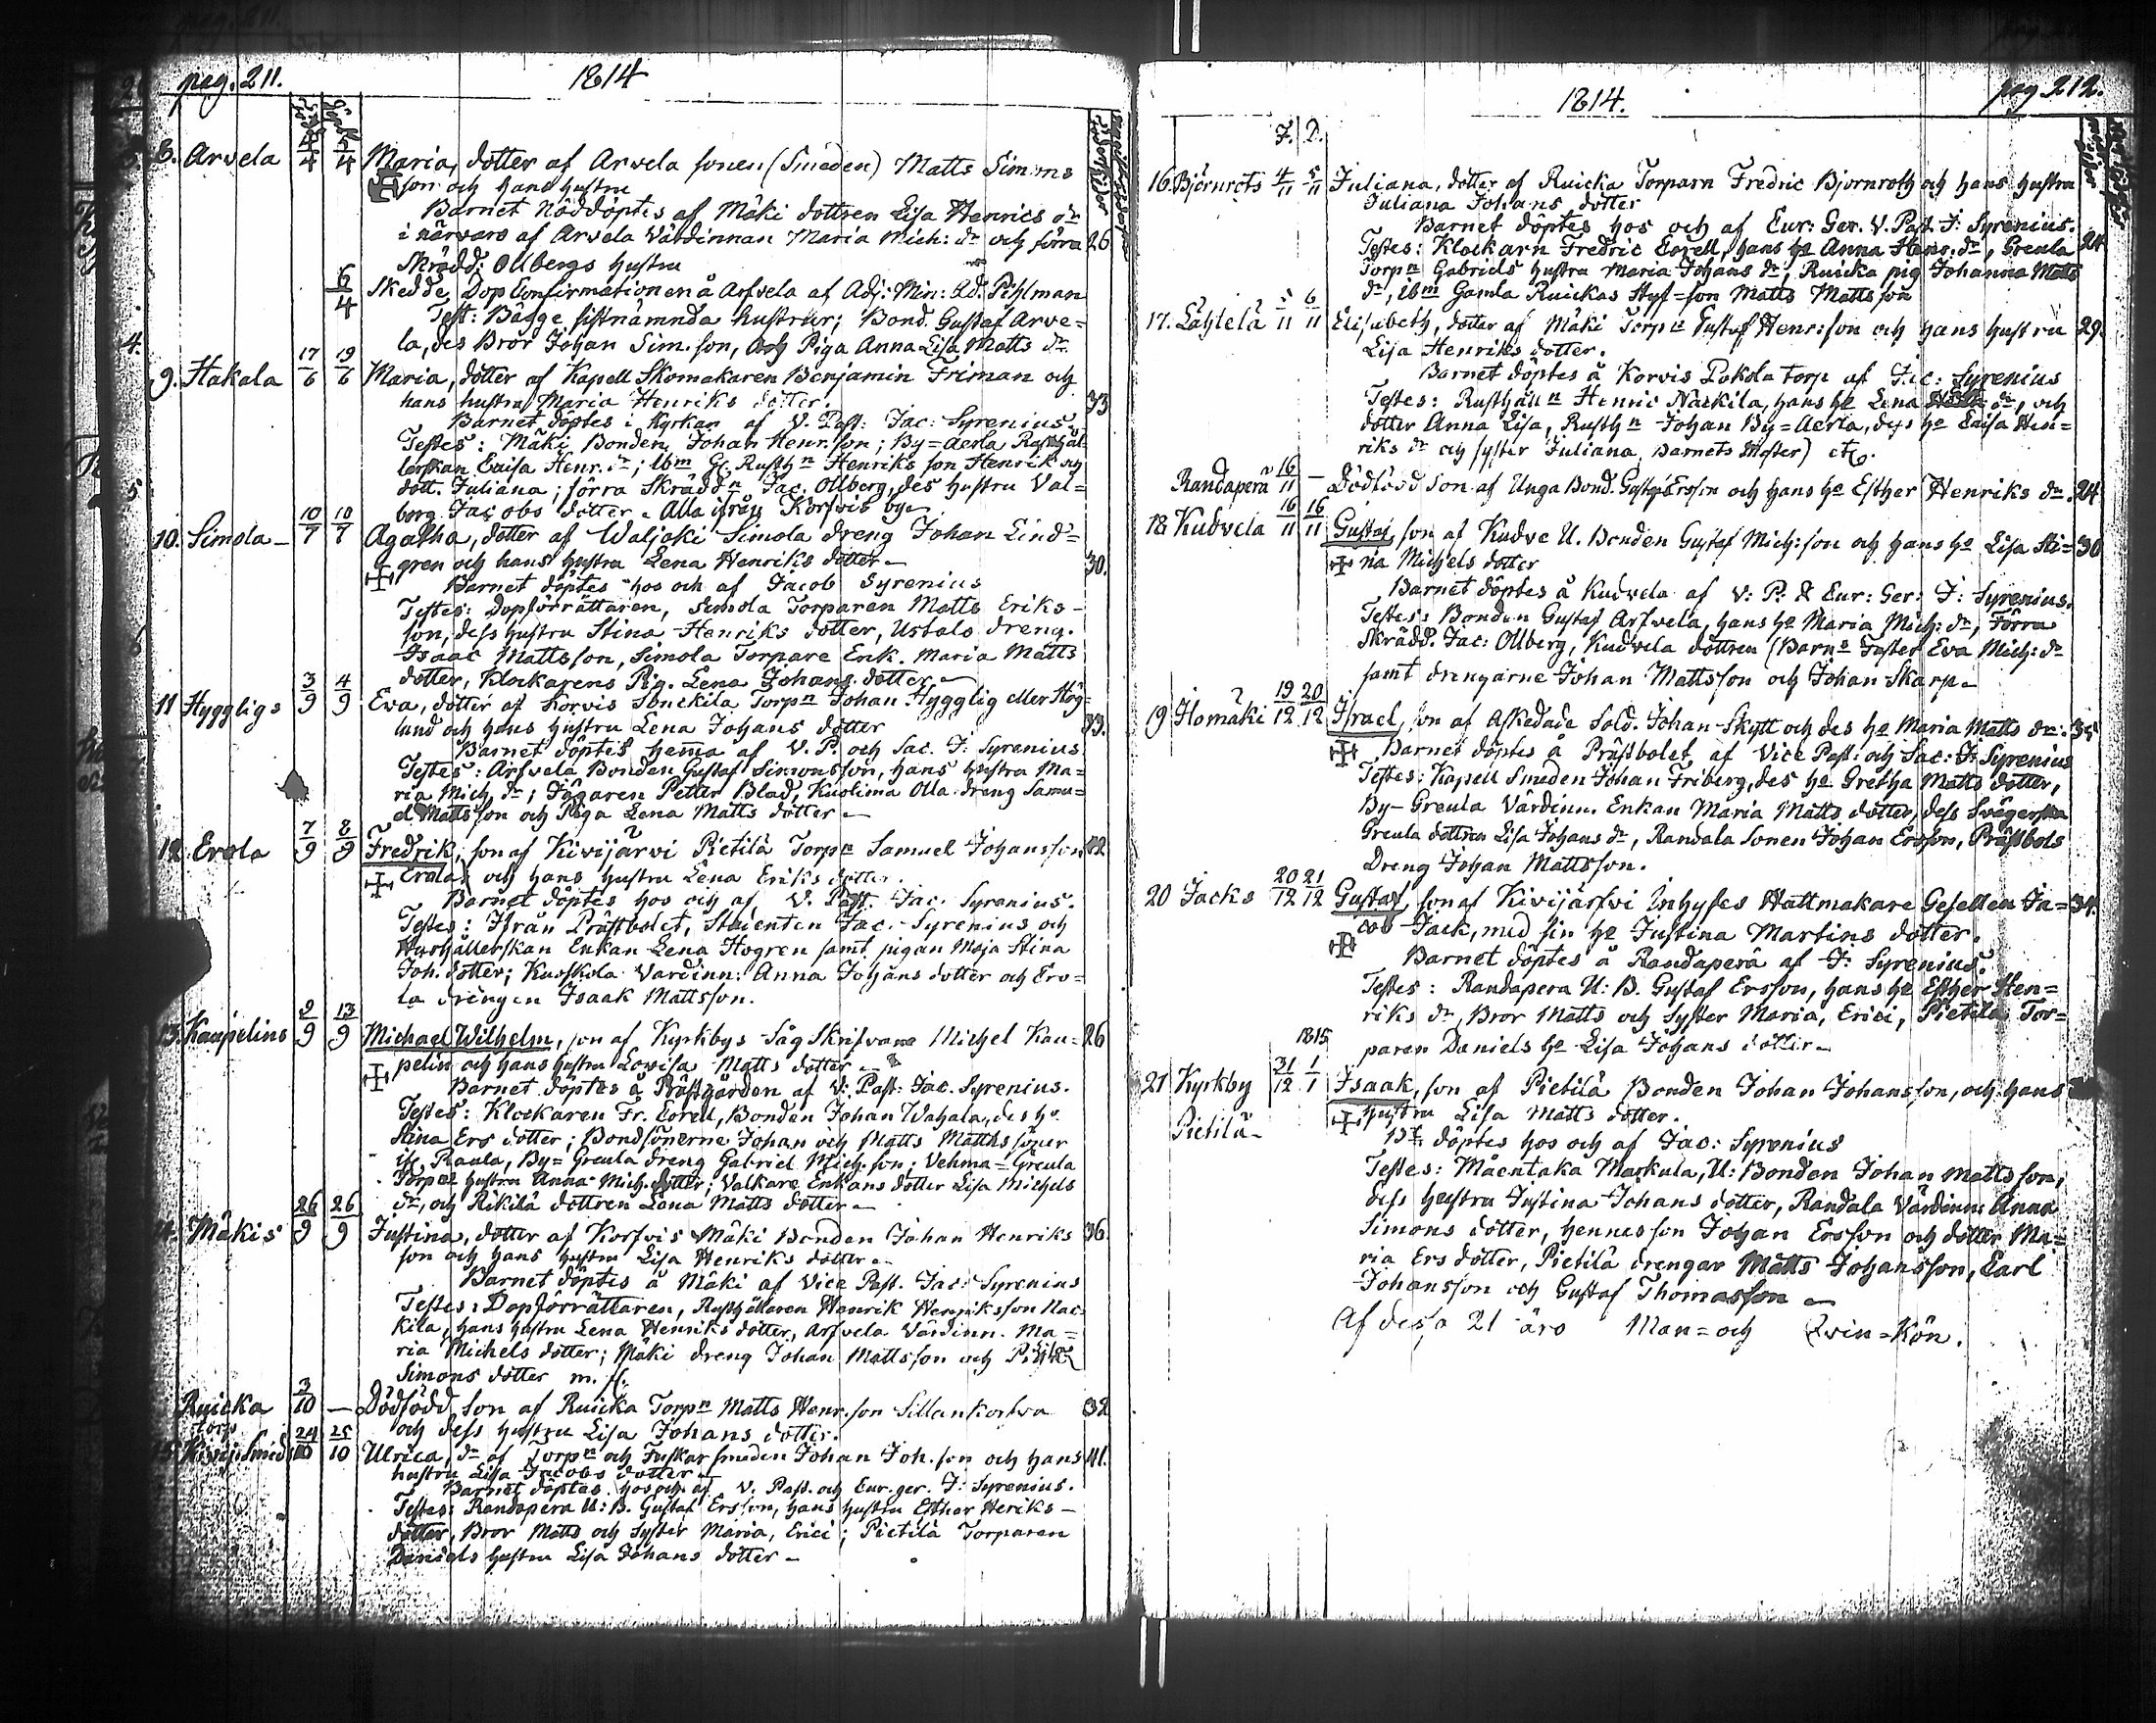 pag. 211.
1814
8. Arvela 4/4 5/4 Maria, dotter af Arvela sonen (Smeden) Matts Simons
son och hans hustru
Barnet Nöddöptes af Mäki dottren Lisa Henrics dr
i närvaro af Arvela Värdinnan Maria Mich: dr och förra 26
Skrädd: Ollbergs hustru
6/4 Skedde Dop Confirmationen å Arfvela af Adj: Min: Ad. Pihlman
Test: Bägge sistnämnda hustrur; Bond. Gustaf Arve=
la, des Bror Johan Sim. son, och Piga Anna Lisa Matts dr
9. Hakala 17/6 19/6 Maria, dotter af Kapell Skomakaren Benjamin Friman och
hans hustru Maria Henriks dotter. 33
Barnet döptes i Kyrkan af V. Past: Jac: Syrenius.
Testes: Mäki Bonden Johan Henr. son; By=Aerla Rusthål
lerskan Caisa Henr. dr; ibm Gr. Rusth n Henriks son Henrik och
dott. Juliana; förra Skrädd n Jac. Ollberg, des hustru Val=
borg Jacobs dotter. Alla ifrån Korfvis by
10. Simola 10/7 10/7 Agatha, dotter af Waljoki Simola Dreng Johan Lind=
gren och hans hustru Lena Henriks dotter 30.
Barnet döptes hos och af Jacob Syrenius
Testes: Dopförrättaren, Simola Torparen Matts Eriks-
son, dess hustru Stina Henriks dotter, Ustalo dreng.
Isaac Mattsson, Simola Torpare Enk. Maria Matts
dotter, Klockarens Pig. Lena Johans dotter
11 Hyggligs 3/9 4/9 Eva, dotter af Korvis Torp n Johan Hygglig eller Hög=
lund och hans hustru Lena Johans dotter 33.
Barnet döptes hema af V. P. och Sac. J: Syrenius
Testes: Arfvela Bonden Gustaf Simonsson, hans hustru Ma-
ria Mich dr; Jägaren Petter Blad, Kuolima Olla dreng Samu=
el Matts son och Piga Lena Matts dotter
12. Erola 7/9 8/9 Fredrik, son af Kivijärvi Pietilä Torp n Samuel Johansson 22
Erola, och hans hustru Lena Eriks dotter.
Barnet döptes hos och af V. Past. Jac. Syrenius.
Testes: Ifrån Prästbolet, Studenten Jac. Syrenius och
Hushållerskan Enkan Lena Hogren samt pigan Maja Stina
Joh. dotter; Kusskola Vardinn: Anna Johans dotter och Ero=
la drengen Isaak Mattsson.
13. Kaupelins 9/9 13/9 Michael Wilhelm, son af Kyrkbys Såg Skrifvare Michel Kau= 26
pelin och hans hustru Lovisa Matts dotter
Barnet döptes å Prästgården af V: Past: Jac. Syrenius.
Testes: Klockaren Fr. Corell, Bonden Johan Wahala, des ho
Stina Ers dotter; Bondsönerne Johan och Matts Matths söner
Raula, By=Greula dreng Gabriel Mich. son; Vehma=Greula
Torp hustru Anna Mich. dotter; Valkare Enkans dotter Lisa Michels
dr, och Rikilä dottren Lena Matts dotter
14. Mäkis 26/9 26/9 Justina, dotter af Korfvis Mäki Bonden Johan Henriks 36.
son och hans hustru Lisa Henriks dotter
Barnet döptes å Mäki af Vice Past. Jac: Syrenius
Testes: Dopförrättaren, Rusthållaren Henrik Henriksson Nac-
kila, hans hustru Lena Henriks dotter, Arfvela Värdinn. Ma=
ria Michels dotter; Mäki dreng Johan Mattsson och
Simons dotter m. fl.
Ruicka 3/10 — Dödfödd, son af Ruicka Torp n Matts Henr. son Sillankorfva 32
torp och dess hustru Lisa Johans dotter.
15. 24/10 25/10 Ulrica, dr af Torp n och Fuskar smeden Johan Joh. son och hans 41.
hustru Lisa Jacobs dotter
Barnet döptes hos och af V. Past. och Cur. ger. J: Syrenius.
Testes: Randapera U: B. Gustaf Ersson, hans hustru Esther Heriks-
dotter, Bror Matts och Syster Maria, Erici; Pietilä Torparen
Daniels hustru Lisa Johans dotter
pag 212.
1814.
F. D.
16. Björnrots 4/11 5/11 Juliana, dotter af Ruicka Torparn Fredric Bjornroth och hans hustru
Juliana Johans dotter
Barnet döptes hos och af Cur: Ger. V. Past. J: Syrenius.
Testes: Klockarn Fredric Corell, hans ho Anna Hans: dr, Greula 24
Torp n Gabriels hustru Maria Johans dr, Ruicka pig Johanna Matts
dr, ibm Gamla Ruickas Styf=son Matts Mattsson
17. Lähtelä 5/11 6/11 Elisabeth, dotter af Mäki Torp n Gustaf Henr: son och hans hustru 29.
Lisa Henriks dotter.
Barnet döptes å Korvis Pokola torp af Jac: Syrenius
Testes: Rusthåll n Henric Näckila, hans ho Lena dr, och
dotter Anna Lisa, Rusth n Johan By=Aerla, dess ho Caisa Hen=
riks dr och syster Juliana, Barnets Moster) etc.
Randapera 16/11 — Dödfödd Son af Unga Bond. Gustaf Ersson och hans ho Esther Henriks dr. 24
18 Kudvela 16/11 16/11 Gustaf, son af Kudve U. Bonden Gustaf Mich: son och hans ho Lisa Sti= 30
na Michels dotter
Barnet döptes å Kudvela af V: P: & Cur: Ger: J: Syrenius.
Testes: Bonden Gustaf Arfvela, hans ho Maria Mich: dr, Förra
Skrädd. Jac: Ollberg, Kudvela dottren (Barns Faster Eva Mich: dr
samt drengarne Johan Mattsson och Johan Skarp
19 Ilomäki 19/12 20/12 Israel, son af Afskedade Sold. Johan Skytt och des ho Maria Matts dr: 35
Barnet döptes å Prästbolet af Vice Past: och Sac: J: Syrenius
Testes: Kapell Smeden Johan Friberg, des ho Gretha Matts dotter,
By-Greula Värdinn. Enkan Maria Matts dotter, dess Svägerska
Greula dottren Lisa Johans dr, Randala Sonen Johan Ersson, Prästbols
Dreng Johan Mattsson.
20 Jacks 20/12 21/12 Gustaf, son af Kivijärfvi Inhyses Hattmakare Gesellen Ja= 34.
cob Jack, med sin ho Justina Martins dotter.
Barnet döptes å Randapera af J: Syrenius.
Testes: Randapera U: B. Gustaf Ersson, hans ho Esther Hen=
riks dr, Bror Matts och Syster Maria, Erici, Pietilä Tor=
paren Daniels ho Lisa Johans dotter
1815
21 Kyrkby 31/12 1/1 Isaak, son af Pietilä Bonden Johan Johansson, och hans
hustru Lisa Matts dotter.
Pietilä
döptes hos och af Jac: Syrenius
Testes: Måentaka Markula, U: Bonden Johan Mattsson,
dess hustru Justina Johans dotter, Randala Värdinn: Anna
Simons dotter, hennes son Johan Ersson och dotter Ma=
ria Ers dotter, Pietilä drengar Matts Johansson, Carl
Johansson och Gustaf Thomasson
Af dessa 21 äro Man= och Qvin=Kön.